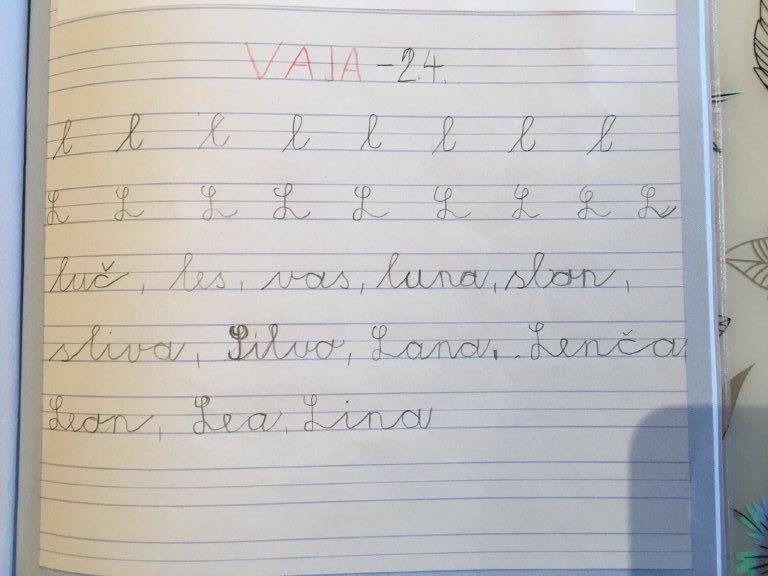 VAJA - 2.4.
l l l l l l l l
L L L L L L L L L
luč, les, vas, luna, slon,
sliva, Silvo, Lana, Lenča
Leon, Lea, Lina